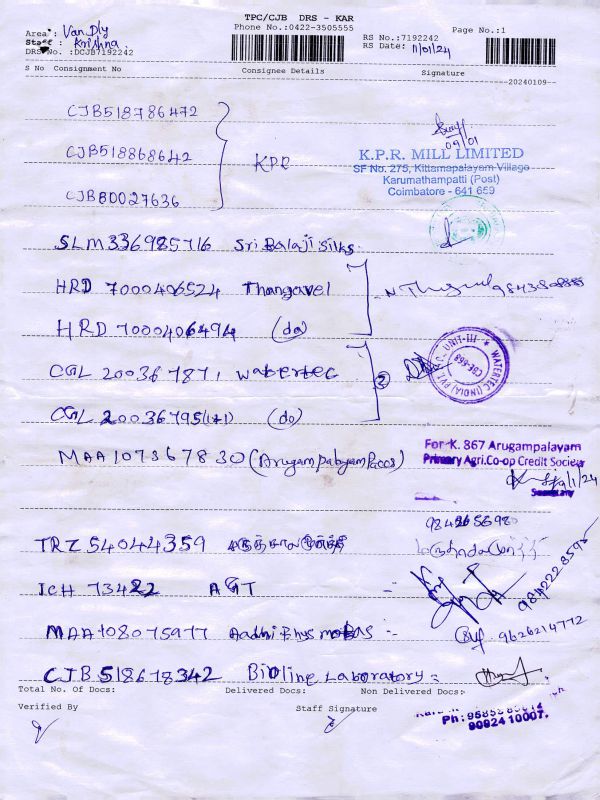 TPC/CJB DRS - KAR
Phone No.:0422-3505555
Area : Van Dly
Staff : Krishna
DRS No. :DCJB7192242
RS No.:7192242
RS Date: 11/01/24
Page No.:1
S No Consignment No Consignee Details Signature
20240109
CJB518786472
CJB518868642 KPR
CJBB0027636
09/01
K.P.R. MILL LIMITED
SF No. 275, Kittamapalayam Village
Karumathampatti (Post)
Coimbatore - 641 659
SLM 336985716 Sri Balaji Silks
HRD 7000406524 Thangavel
HRD 7000406494 (do)
CGL 20036787 1 Watertec
CGL 20036795(1+1) (do)
2
WATERTEC (INDIA) PVT. UNIT-III
MAA107367830 (Arugampalayam Paccs)
For K. 867 Arugampalayam
Primary Agri.Co-op Credit Society
9/1/24
Secretary
TRZ 54044359
ICH 73422 AGT
9842228595
MAA108075977 Aadhi Phys :- 9626214772
CJB 518678342 Bioline Laboratory :
Total No. Of Docs: Delivered Docs: Non Delivered Docs:
Verified By Staff Signature
90924 10007.